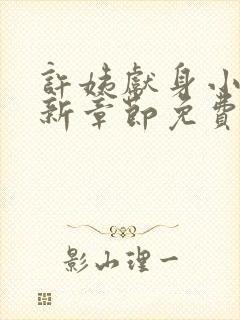 許姊獻身小
新章節免費
影山理一